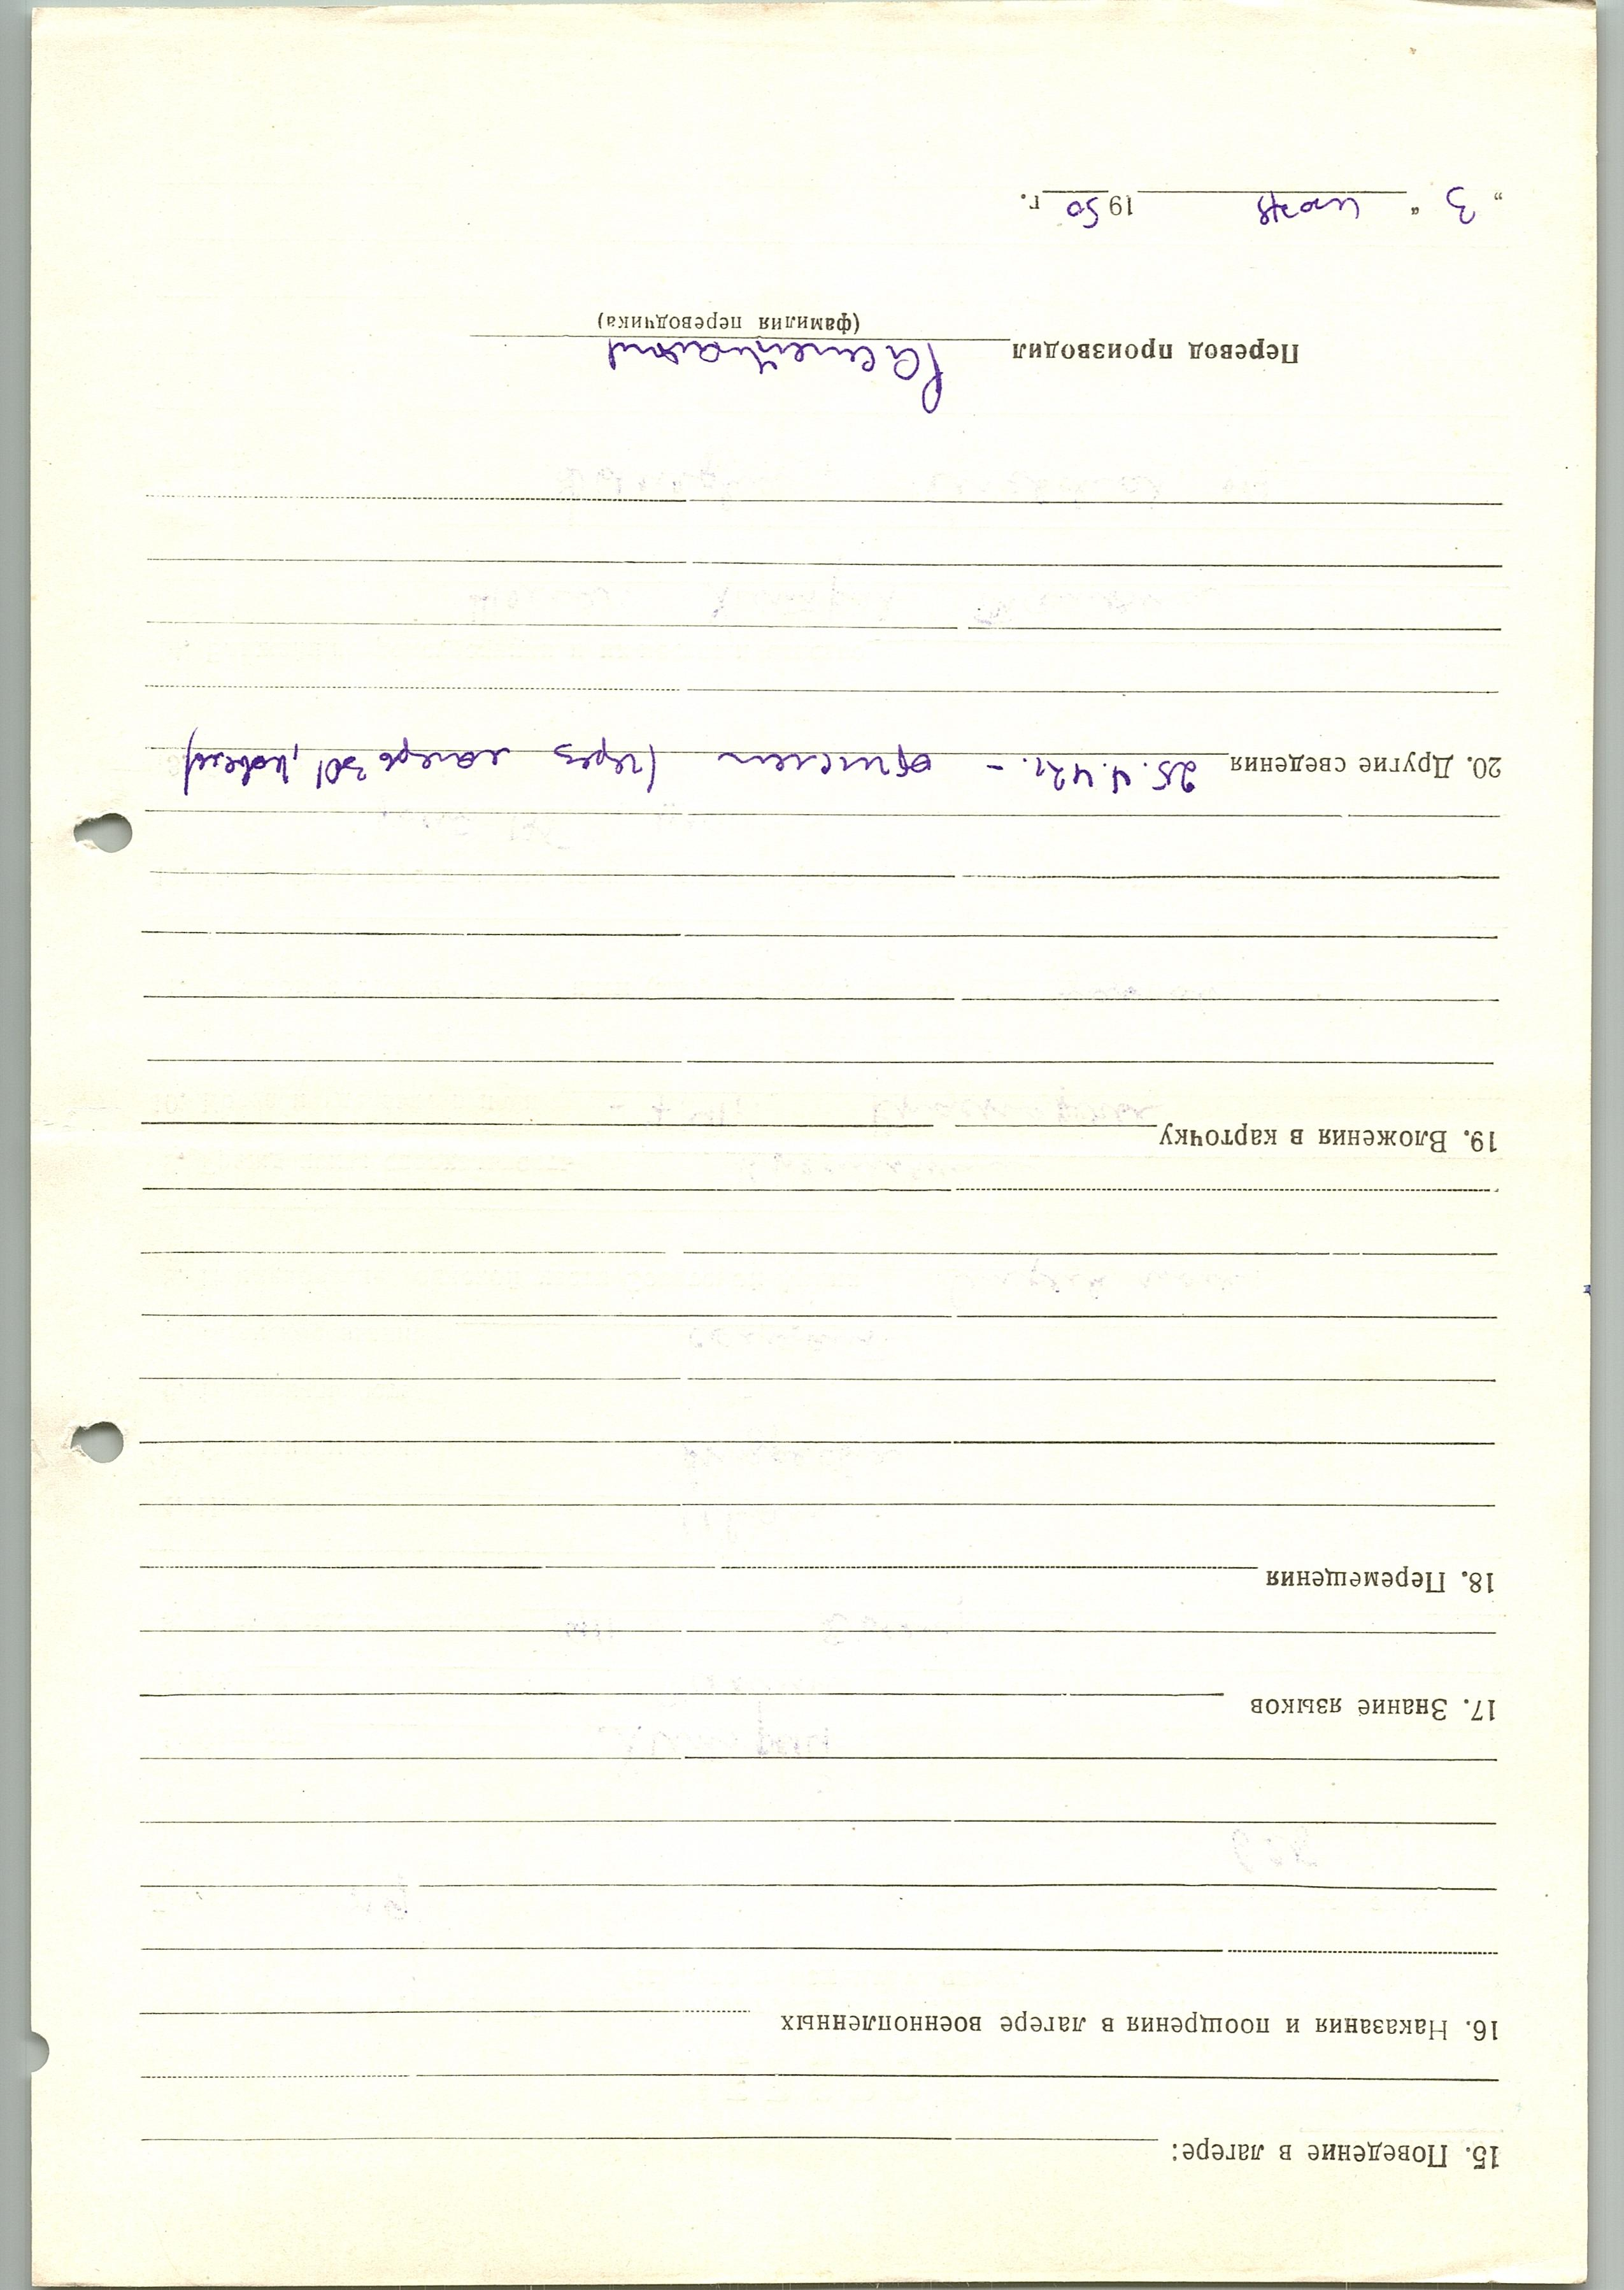 15. Поведение в лагере:
16. Наказания и поощрения в лагере военнопленных
17. Знание языков
18. Перемещения
19. Вложения в карточку
20. Другие сведения 25.4.42г. – отпущен (через лагерь 301, Ковель)
Перевод производил
(фамилия переводчика)
„ 3 “ 19 50 г.